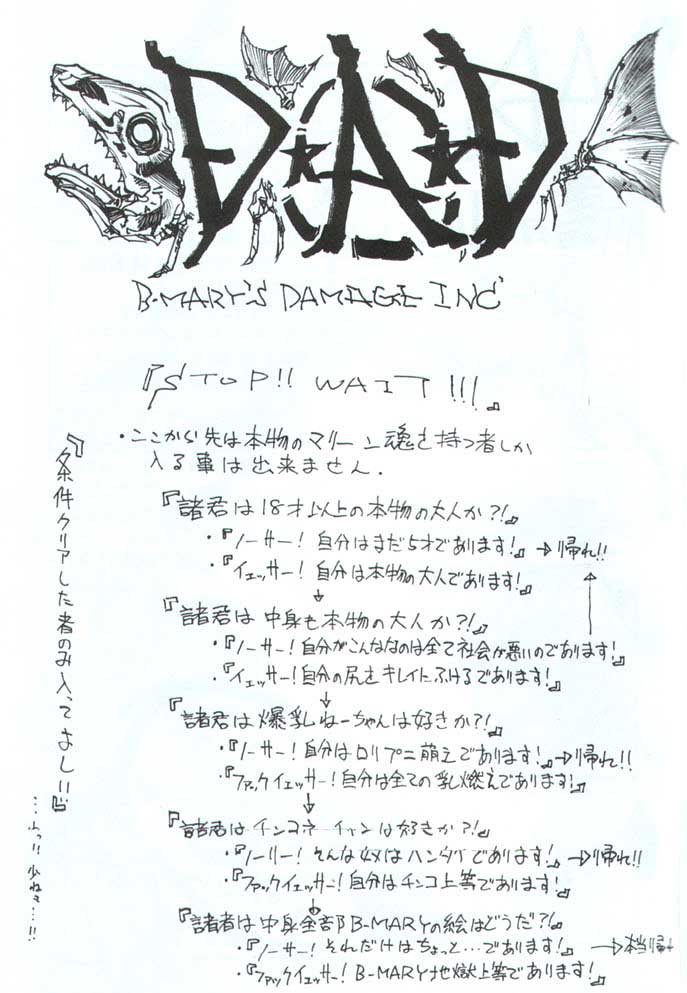 D·A·D
B-MARY'S DAMAGE INC
『STOP!! WAIT!!!』
・ここから先は本物のマリーン魂を持つ者しか
入る事は出来ません.
『諸君は18才以上の本物の大人か?!』
・『ノーサー! 自分はまだ5才であります!』→帰れ!!
・『イェッサー! 自分は本物の大人であります!』
『諸君は中身も本物の大人か?!』
・『ノーサー!自分がこんななのは全て社会が悪いのであります!』
・『イェッサー!自分の尻をキレイにふけるであります!』
『諸君は爆乳ねーちゃんは好きか?!』
・『ノーサー!自分はロリプニ萌えであります!』→帰れ!!
・『ファックイェッサー!自分は全ての乳燃えであります!』
『諸君はチンコネーチャンは好きか?!』
・『ノーサー! そんな奴はハンタイであります!』→帰れ!!
・『ファックイェッサー!自分はチンコ上等であります!』
『諸者は中身全部B-MARYの絵はどうだ?!』
・『ノーサー! それだけはちょっと…であります!』→本当帰れ
・『ファックイェッサー! B-MARY地獄上等であります!』
『条件クリアした者のみ入ってよし!!』
…ふっ!! 少ねぇ…!!